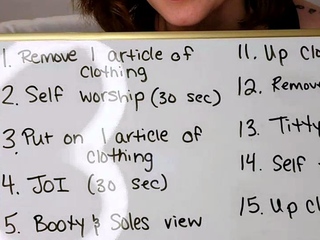 1. Remove 1 article of
clothing
2. Self worship (30 sec)
3 Put on 1 article of
clothing
4. JOI (30 sec)
5. Booty & Soles view
11. Up Clo
12. Remov
13. Titty
14. Self
15. Up cl